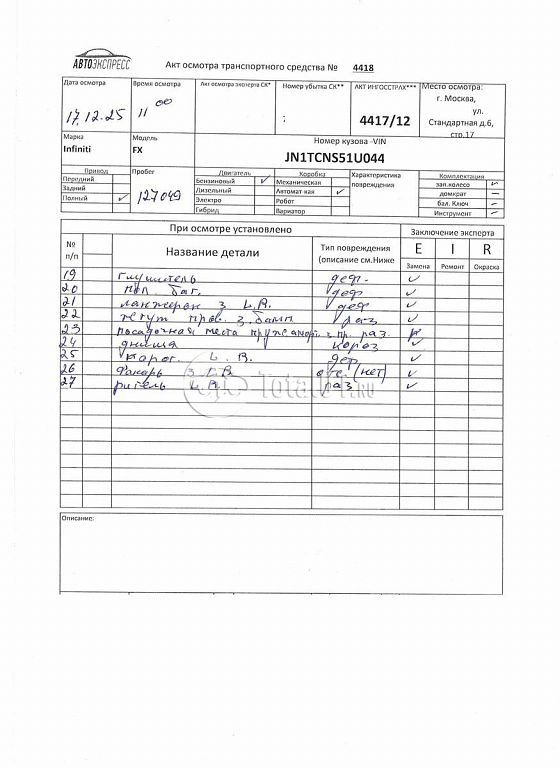 АВТОЭКСПРЕСС
Акт осмотра транспортного средства № 4418
Дата осмотра
17.12.25
Время осмотра
11 00
Акт осмотра эксперта СК*
Номер убытка СК**
:
АКТ ИНГОССТРАХ***
4417/12
Место осмотра:
г. Москва,
ул.
Стандартная д.6,
стр.17
Марка
Infiniti
Модель
FX
Номер кузова -VIN
JN1TCNS51U044
Привод
Передний
Задний
Полный ✓
Пробег
127049
Двигатель
Бензиновый ✓
Дизельный
Электро
Гибрид
Коробка
Механическая
Автомат-кая ✓
Робот
Вариатор
Характеристика
повреждения
Комплектация
зап.колесо
домкрат —
бал. Ключ
Инструмент
При осмотре установлено
Заключение эксперта
№
п/п
Название детали
Тип повреждения
(описание см.Ниже
E I R
Замена Ремонт Окраска
19 глушитель деф. ✓
20 пол баг. деф ✓
21 ланжерон з L.A. деф ✓
22 жгут пров. з. бамп. раз ✓
23 посадочная места пр. раз.
24 днища ✓
25 L. B. деф ✓
26 Фонарь з L B. отс (нет) ✓
27 раз ✓
Total01.RU
Описание: